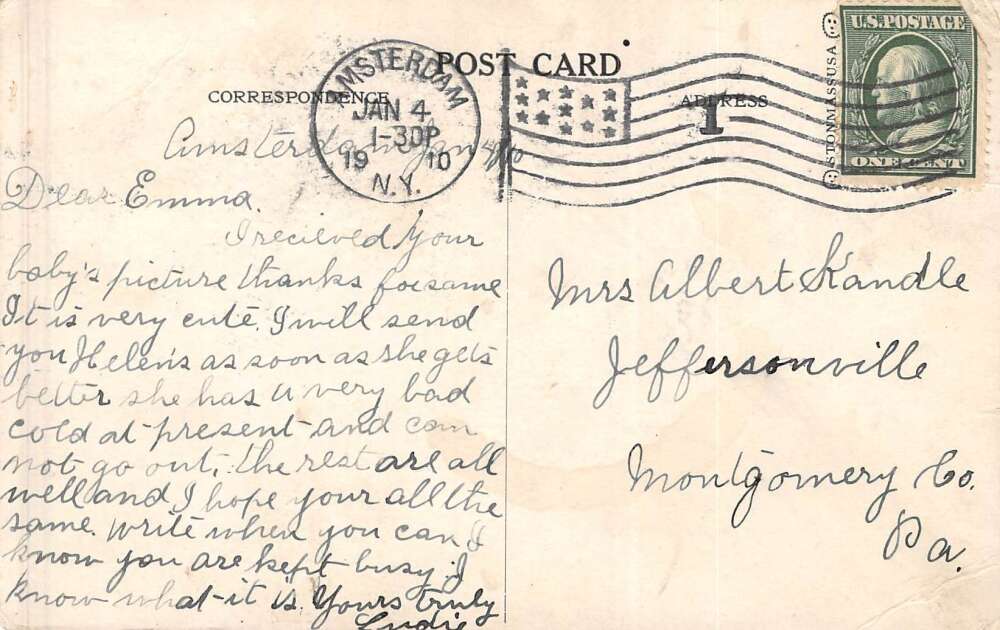 POST CARD
CORRESPONDENCE
ADDRESS
AMSTERDAM
JAN 4
1-30P
19 10
N.Y.
1
U.S. POSTAGE
ONE CENT
Amsterdam Jan 4/10
Dear Emma.
I recieved your
baby's picture thanks for same
It is very cute. I will send
you Helen's as soon as she gets
better she has a very bad
cold at present and can
not go out, the rest are all
well and I hope your all the
same. write when you can I
know you are kept busy I
know what it is. Yours truly
Ludie
Mrs Albert Kandle
Jeffersonville
Montgomery Co.
Pa.